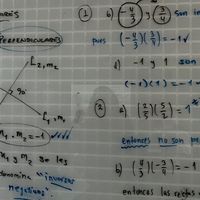 PERPENDICULARES
L₂, m₂
90
L₁, m₁
m₁ · m₂ = -1
m₁ y m₂ se les
denomina "inversos
negativos"
① b) (-4/3) y (3/4) son in
pues (-4/3)(3/4) = -1 ✓
d) -1 y 1 son
(-1)(1) = -1
② a) (2/5)(5/2) = 1
entonces no son pe
b) (4/3)(-3/4) = -1
entonces las rectas